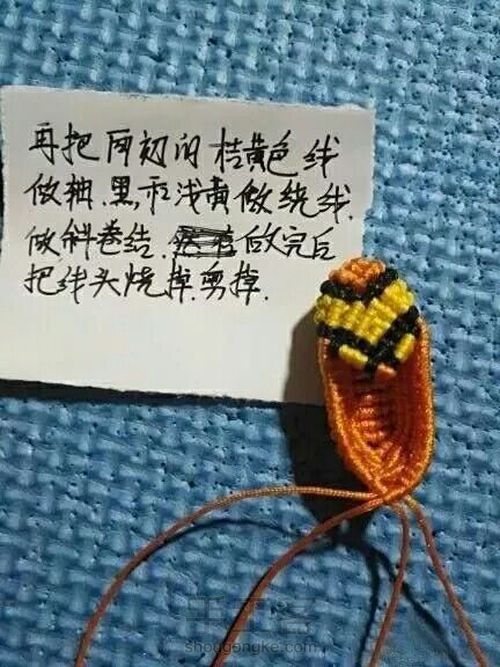 再把两初的桔黄色线
做轴.黑.和浅黄做绕线.
做斜卷结.做完后
把线头烧掉.剪掉.
shougongke.com